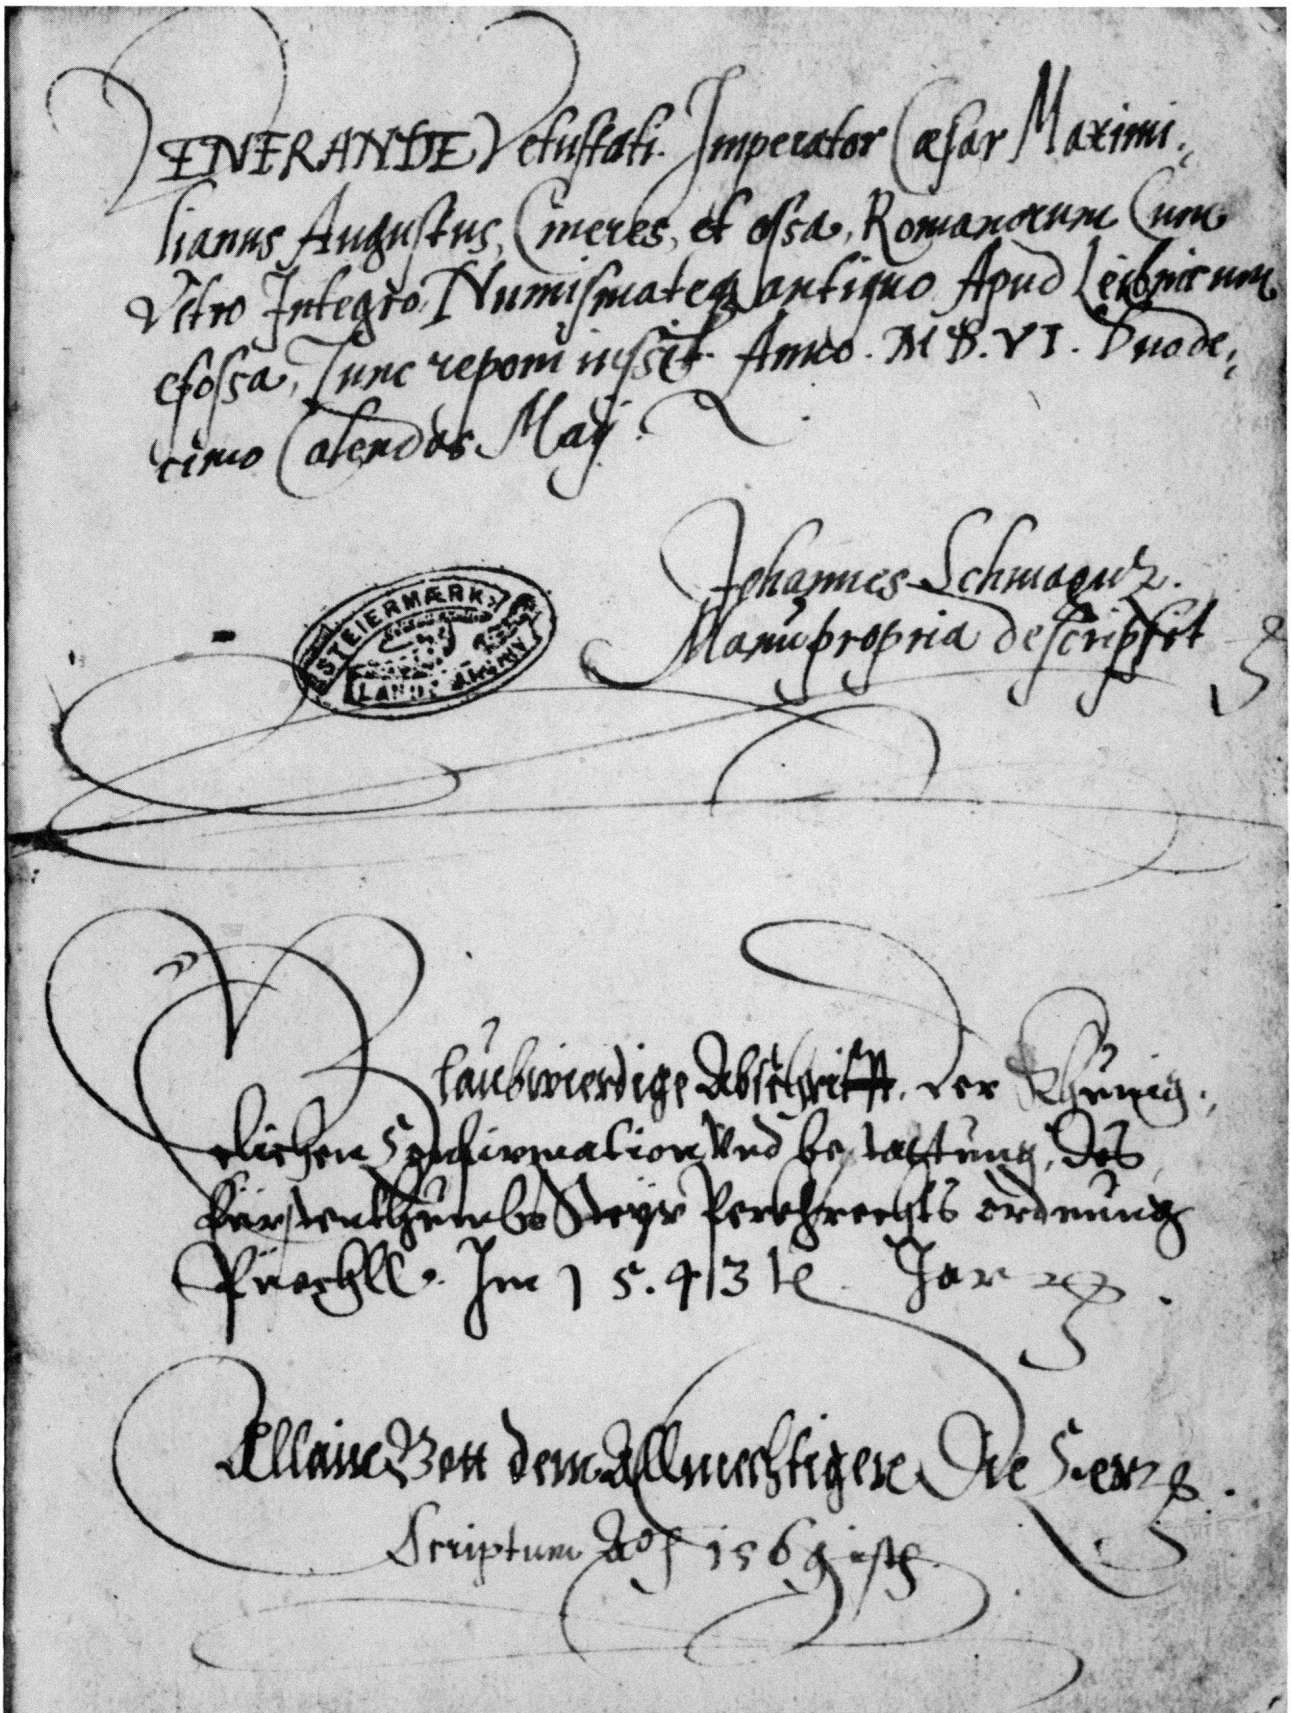 VENERANDE Vetustati. Imperator Cæsar Maximi⸗
lianus Augustus, Cineres, et ossa, Romanorum Cum
Vitro Integro, Numismateq antiquo Apud Leibnicum
efossa, Tunc reponi iussit. Anno. M D. VI. Duode⸗
cimo Calendas Maij.
Johannes
Manu propria descripsit
STEIERMÆRK.
LANDS ARCHIV
Glaubwierdige Abschrifft. der Khünig⸗
clichen Confirmation Vnd bestattung, des
Fürstenthumbs Steyr Perkhrechts ordnung
Püechll. Im 1 5. 4 3 te Jar
Allain Gott dem Allmechtigen Die Eer
Scriptum Aō 1569 isth